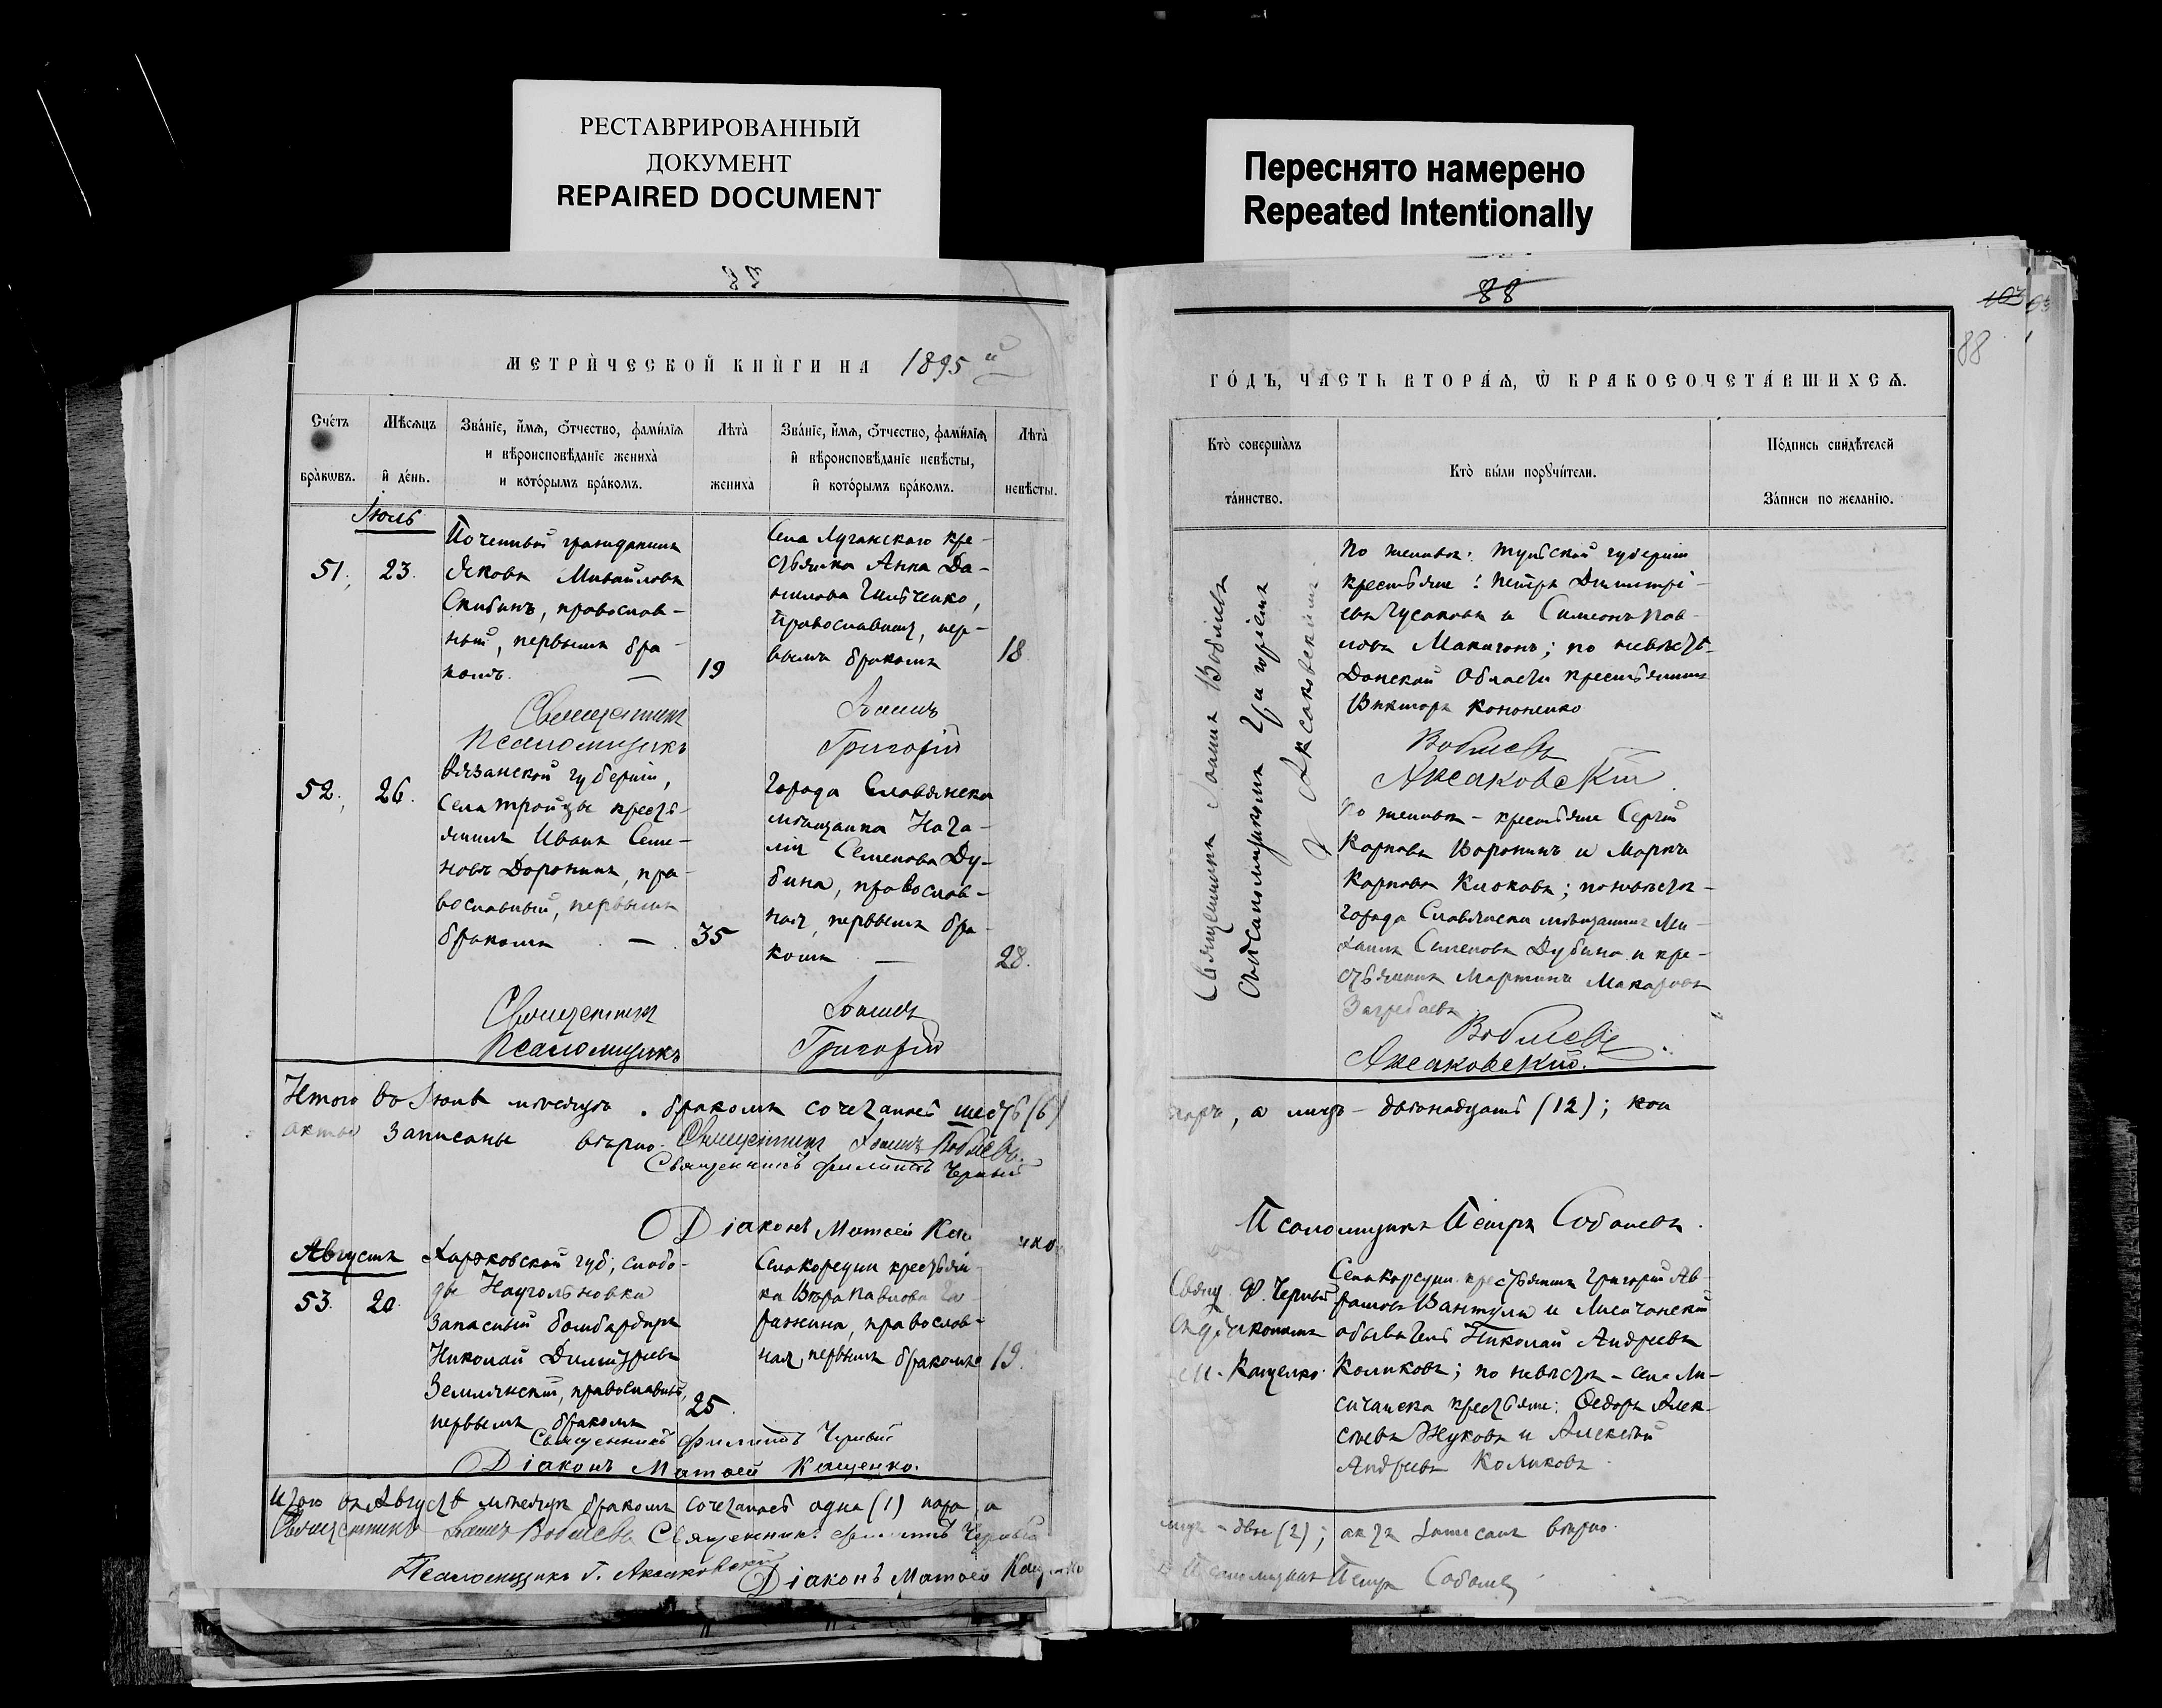 РЕСТАВРИРОВАННЫЙ
ДОКУМЕНТ
REPAIRED DOCUMENT
Переснято намерено
Repeated Intentionally
МЕТРИ́ЧЕСКОЙ КНИ́ГИ НА 1895 й
Сче́тъ бра́кѡвъ.
Мѣсѧцъ и҆ де́нь.
Зва́нїе, и҆́мѧ, ѻ҆́тчество, фами́лїѧ
и вѣроисповѣ́данїе жениха̀
и кото́рымъ бра́комъ.
Лѣта̀ жениха̀
Зва́нїе, и҆́мѧ, ѻ҆́тчество, фами́лїѧ
и҆ вѣроисповѣ́данїе невѣ́сты,
и҆ кото́рымъ бра́комъ.
Лѣта̀ невѣ́сты.
Іюль
51.
23.
Почетный гражданинъ
Яковъ Михайловъ
Скибинъ, православ-
ный, первымъ бра-
комъ. —
19
Села Луганскаго кре-
стьянка Анна Да-
нилова Ильченко,
православная, пер-
вымъ бракомъ
18
Священникъ Іоаннъ
Псаломщикъ Григорій
52.
26.
Рязанской губерніи,
села Троицы кресть-
янинъ Иванъ Семе-
новъ Доронинъ, пра-
вославный, первымъ
бракомъ —
35
Города Славянска
мѣщанка Ната-
лія Семенова Ду-
бина, православ-
ная, первымъ бра-
комъ —
28.
Священникъ Іоаннъ
Псаломщикъ Григорій
Итого въ Іюлѣ мѣсяцѣ бракомъ сочеталось шесть (6)
акты записаны вѣрно. Священникъ Іоаннъ
Священникъ Филиппъ Черный
Діаконъ Матвей
Августъ
53.
20.
Харьковской губ., слобо-
ды
запасный бомбардиръ
Николай Димитріевъ
Землянскій, православный,
первымъ бракомъ
25
Села Корсуни крестьян-
ка Вѣра Павлова
православ-
ная, первымъ бракомъ
19.
Священникъ Филиппъ Черный
Діаконъ Матвей Кащенко.
Итого въ Августѣ мѣсяцѣ бракомъ сочеталось одна (1) пара, а
Священникъ Іоаннъ Священникъ Филиппъ Черный
Псаломщикъ Г. Аксаковскій Діаконъ Матвей
88
103
88
ГО́ДЪ, ЧА́СТЬ ВТОРА́Ѧ, Ѽ БРАКОСОЧЕТА́ВШИХСѦ.
Кто̀ соверша́лъ та́инство.
Кто̀ бы́ли порꙋчи́тели.
По́дпись свидѣ́телей
За́писи по жела́нїю.
Священникъ Іоаннъ
псаломщикомъ Григоріемъ
Аксаковскимъ.
По женихѣ:
крестьяне: Петръ Димитрі-
евъ Гусаковъ и Симеонъ Пав-
ловъ Макагонъ; по невѣстѣ-
Донской Области крестьянинъ
Викторъ Кононенко
Аксаковскій
По женихѣ - крестьяне Сергій
Карповъ Воронинъ и Маркъ
Карповъ Клоковъ; по невѣстѣ -
города Славянска мѣщанинъ Ми-
хаилъ Семеновъ Дубина и кре-
стьянинъ Мартинъ Макаровъ
Аксаковскій.
паръ, а лицъ - двѣнадцать (12); кои
Псаломщикъ Петръ Соболевъ.
Свящ. Ф. Черный
съ діакономъ
М. Кащенко.
Села Корсуни крестьянинъ Григорій Ав-
рамовъ Вантула и Лисичанскій
обыватель Николай Андреевъ
Коликовъ; по невѣстѣ - села Ли-
сичанска крестьяне: Ѳедоръ Алек-
сѣевъ Жуковъ и Алексѣй
Андреевъ Коликовъ.
лицъ - двое (2); актъ записанъ вѣрно.
Псаломщикъ Петръ Соболевъ